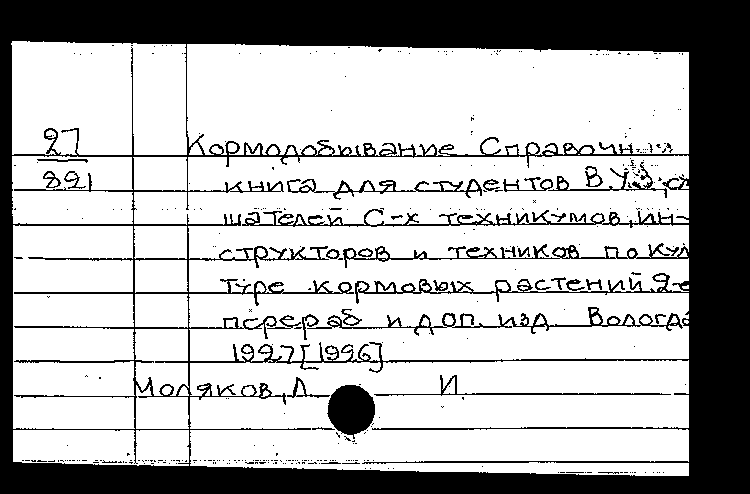 27
891
Кормодобывание Справочная
книга для студентов В.У.З, сл
шателей С-х техникумов, ин-
структоров и техников по кул
туре кормовых растений. 2-е
перераб и доп. изд Вологда
1927 [1926]
Моляков, Д. И.